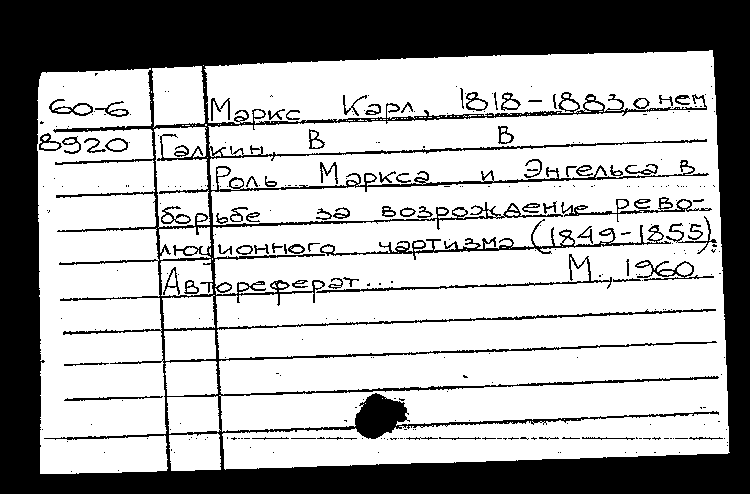 60-6 Маркс Карл, 1818-1883, о нем
8920 Галкин, В В
Роль Маркса и Энгельса в
борьбе за возрождение рево-
люционного чартизма (1849-1855):
Автореферат... М., 1960.